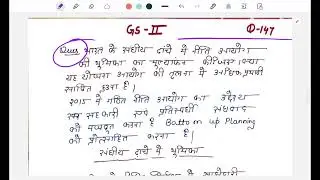 GS-II
Q-147
Ques भारत के संघीय ढांचे में नीति आयोग
की भूमिका का मूल्यांकन कीजिए। क्या
यह योजना आयोग की तुलना में अधिक प्रभावी
साबित हुआ है।
2015 में गठित नीति आयोग का उद्देश्य
सहकारी एवं प्रतिस्पर्धी संघवाद
को मजबूत करना है Bottom up Planning
को प्रोत्साहित करना है।
संघीय ढाँचे में भूमिका